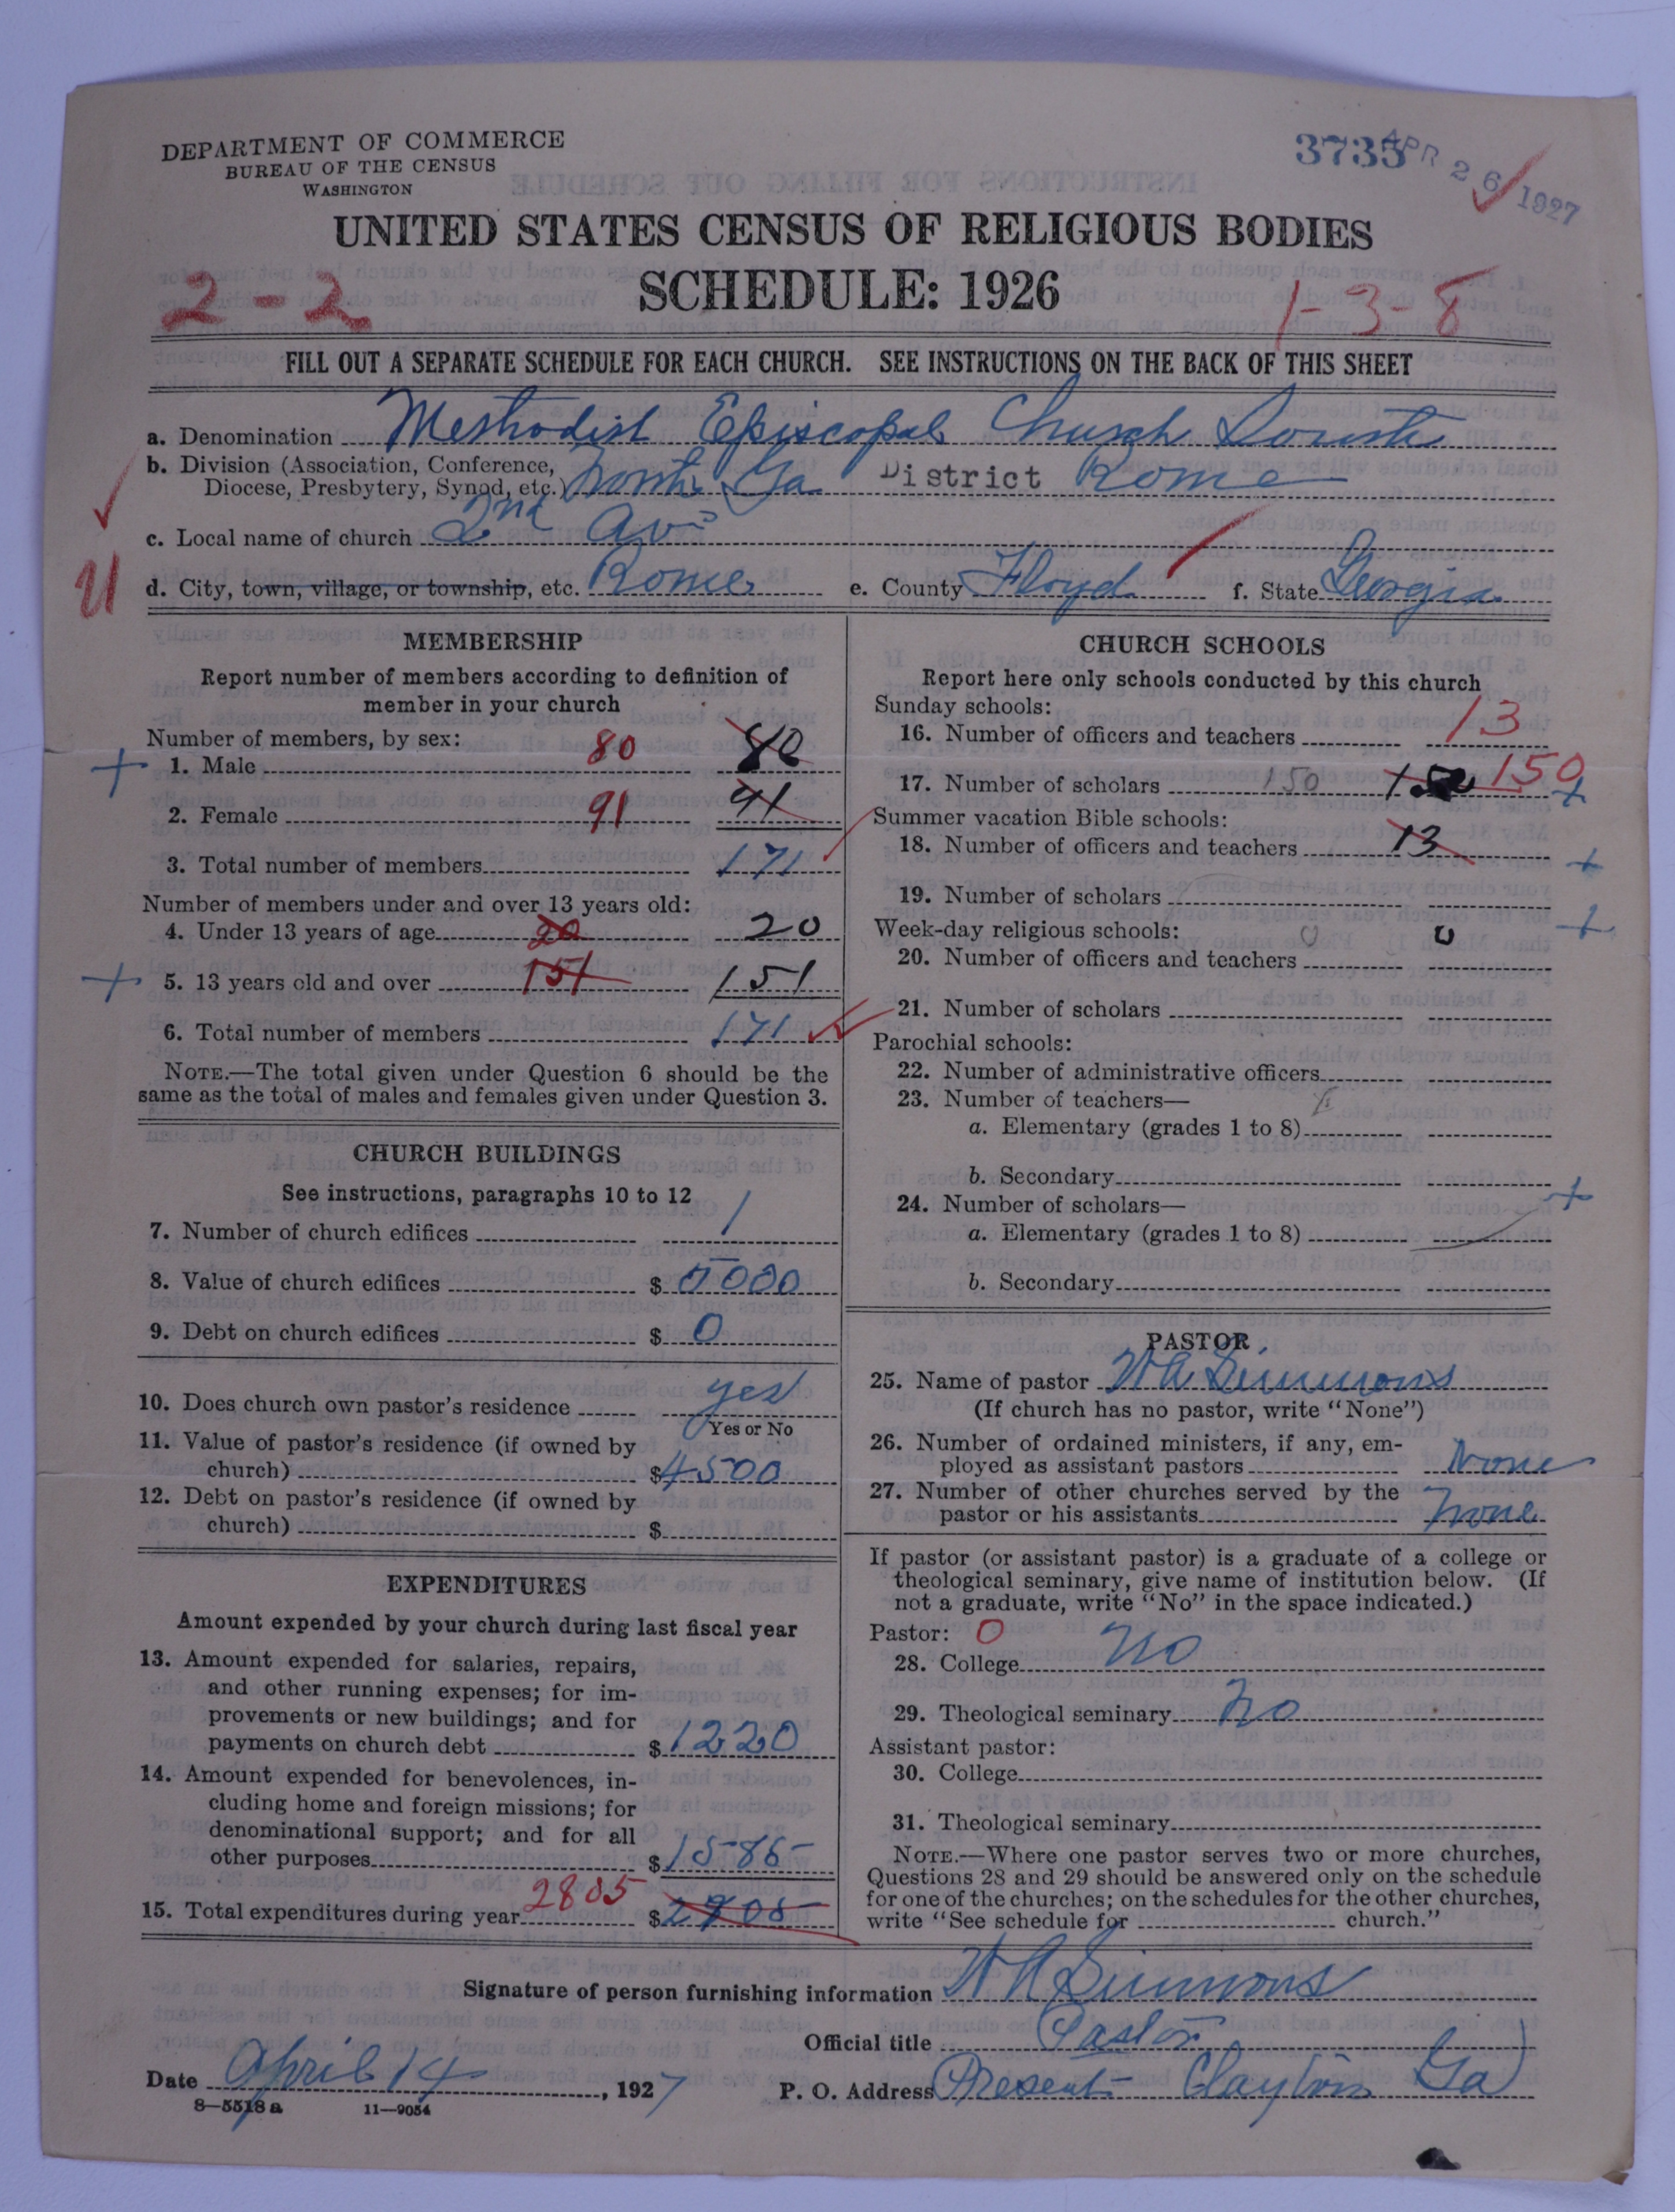 DEPARTMENT OF COMMERCE
BUREAU OF THE CENSUS
WASHINGTON
3735 APR 26 1927
UNITED STATES CENSUS OF RELIGIOUS BODIES
SCHEDULE: 1926
2-2
1-3-8
FILL OUT A SEPARATE SCHEDULE FOR EACH CHURCH. SEE INSTRUCTIONS ON THE BACK OF THIS SHEET
a. Denomination Methodist Episcopal Church South
b. Division (Association, Conference, Diocese, Presbytery, Synod, etc.) North Ga District Rome
c. Local name of church 2nd Ave
d. City, town, village, or township, etc. Rome e. County Floyd f. State Georgia
MEMBERSHIP
Report number of members according to definition of
member in your church
Number of members, by sex:
1. Male 80 80
2. Female 91 91
3. Total number of members 171
Number of members under and over 13 years old:
4. Under 13 years of age 20 20
5. 13 years old and over 151 151
6. Total number of members 171
NOTE.—The total given under Question 6 should be the
same as the total of males and females given under Question 3.
CHURCH BUILDINGS
See instructions, paragraphs 10 to 12
7. Number of church edifices 1
8. Value of church edifices $ 5000
9. Debt on church edifices $ 0
10. Does church own pastor's residence yes
Yes or No
11. Value of pastor's residence (if owned by
church) $ 4500
12. Debt on pastor's residence (if owned by
church) $
EXPENDITURES
Amount expended by your church during last fiscal year
13. Amount expended for salaries, repairs,
and other running expenses; for im-
provements or new buildings; and for
payments on church debt $ 1220
14. Amount expended for benevolences, in-
cluding home and foreign missions; for
denominational support; and for all
other purposes $ 1585
15. Total expenditures during year 2805 $
CHURCH SCHOOLS
Report here only schools conducted by this church
Sunday schools:
16. Number of officers and teachers 13
17. Number of scholars 150 150 150
Summer vacation Bible schools:
18. Number of officers and teachers 13
19. Number of scholars
Week-day religious schools: 0 0
20. Number of officers and teachers
21. Number of scholars
Parochial schools:
22. Number of administrative officers
23. Number of teachers—
a. Elementary (grades 1 to 8)
b. Secondary
24. Number of scholars—
a. Elementary (grades 1 to 8)
b. Secondary
PASTOR
25. Name of pastor W A Simmons
(If church has no pastor, write "None")
26. Number of ordained ministers, if any, em-
ployed as assistant pastors None
27. Number of other churches served by the
pastor or his assistants None
If pastor (or assistant pastor) is a graduate of a college or
theological seminary, give name of institution below. (If
not a graduate, write "No" in the space indicated.)
Pastor: 0
28. College No
29. Theological seminary No
Assistant pastor:
30. College
31. Theological seminary
NOTE.—Where one pastor serves two or more churches,
Questions 28 and 29 should be answered only on the schedule
for one of the churches; on the schedules for the other churches,
write "See schedule for church."
Signature of person furnishing information W A Simmons
Official title Pastor
Date April 14, 1927 P. O. Address (Present Clayton Ga)
8—5518 a 11—9054